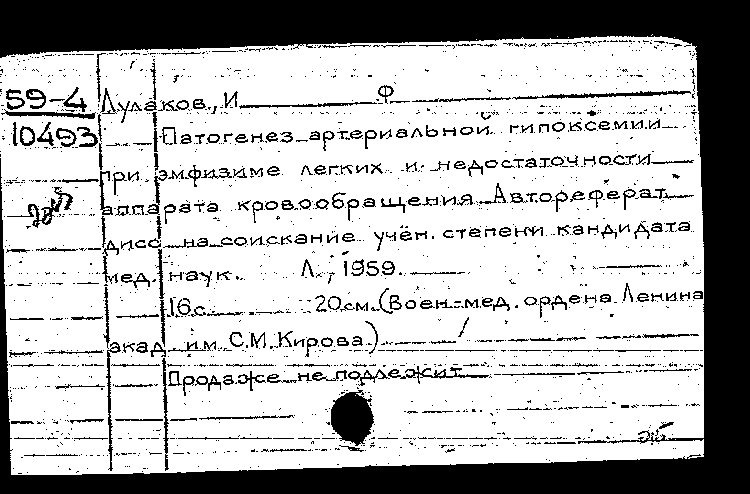 59-4
10493
Лулаков, И Ф
Патогенез артериальной гипоксемии
при эмфизиме легких и недостаточности
аппарата кровообращения Автореферат
дисс на соискание учён. степени кандидата
мед. наук. Л., 1959.
16с. 20см. (Воен.-мед. ордена Ленина
акад им С.М.Кирова)
Продаже не подлежит